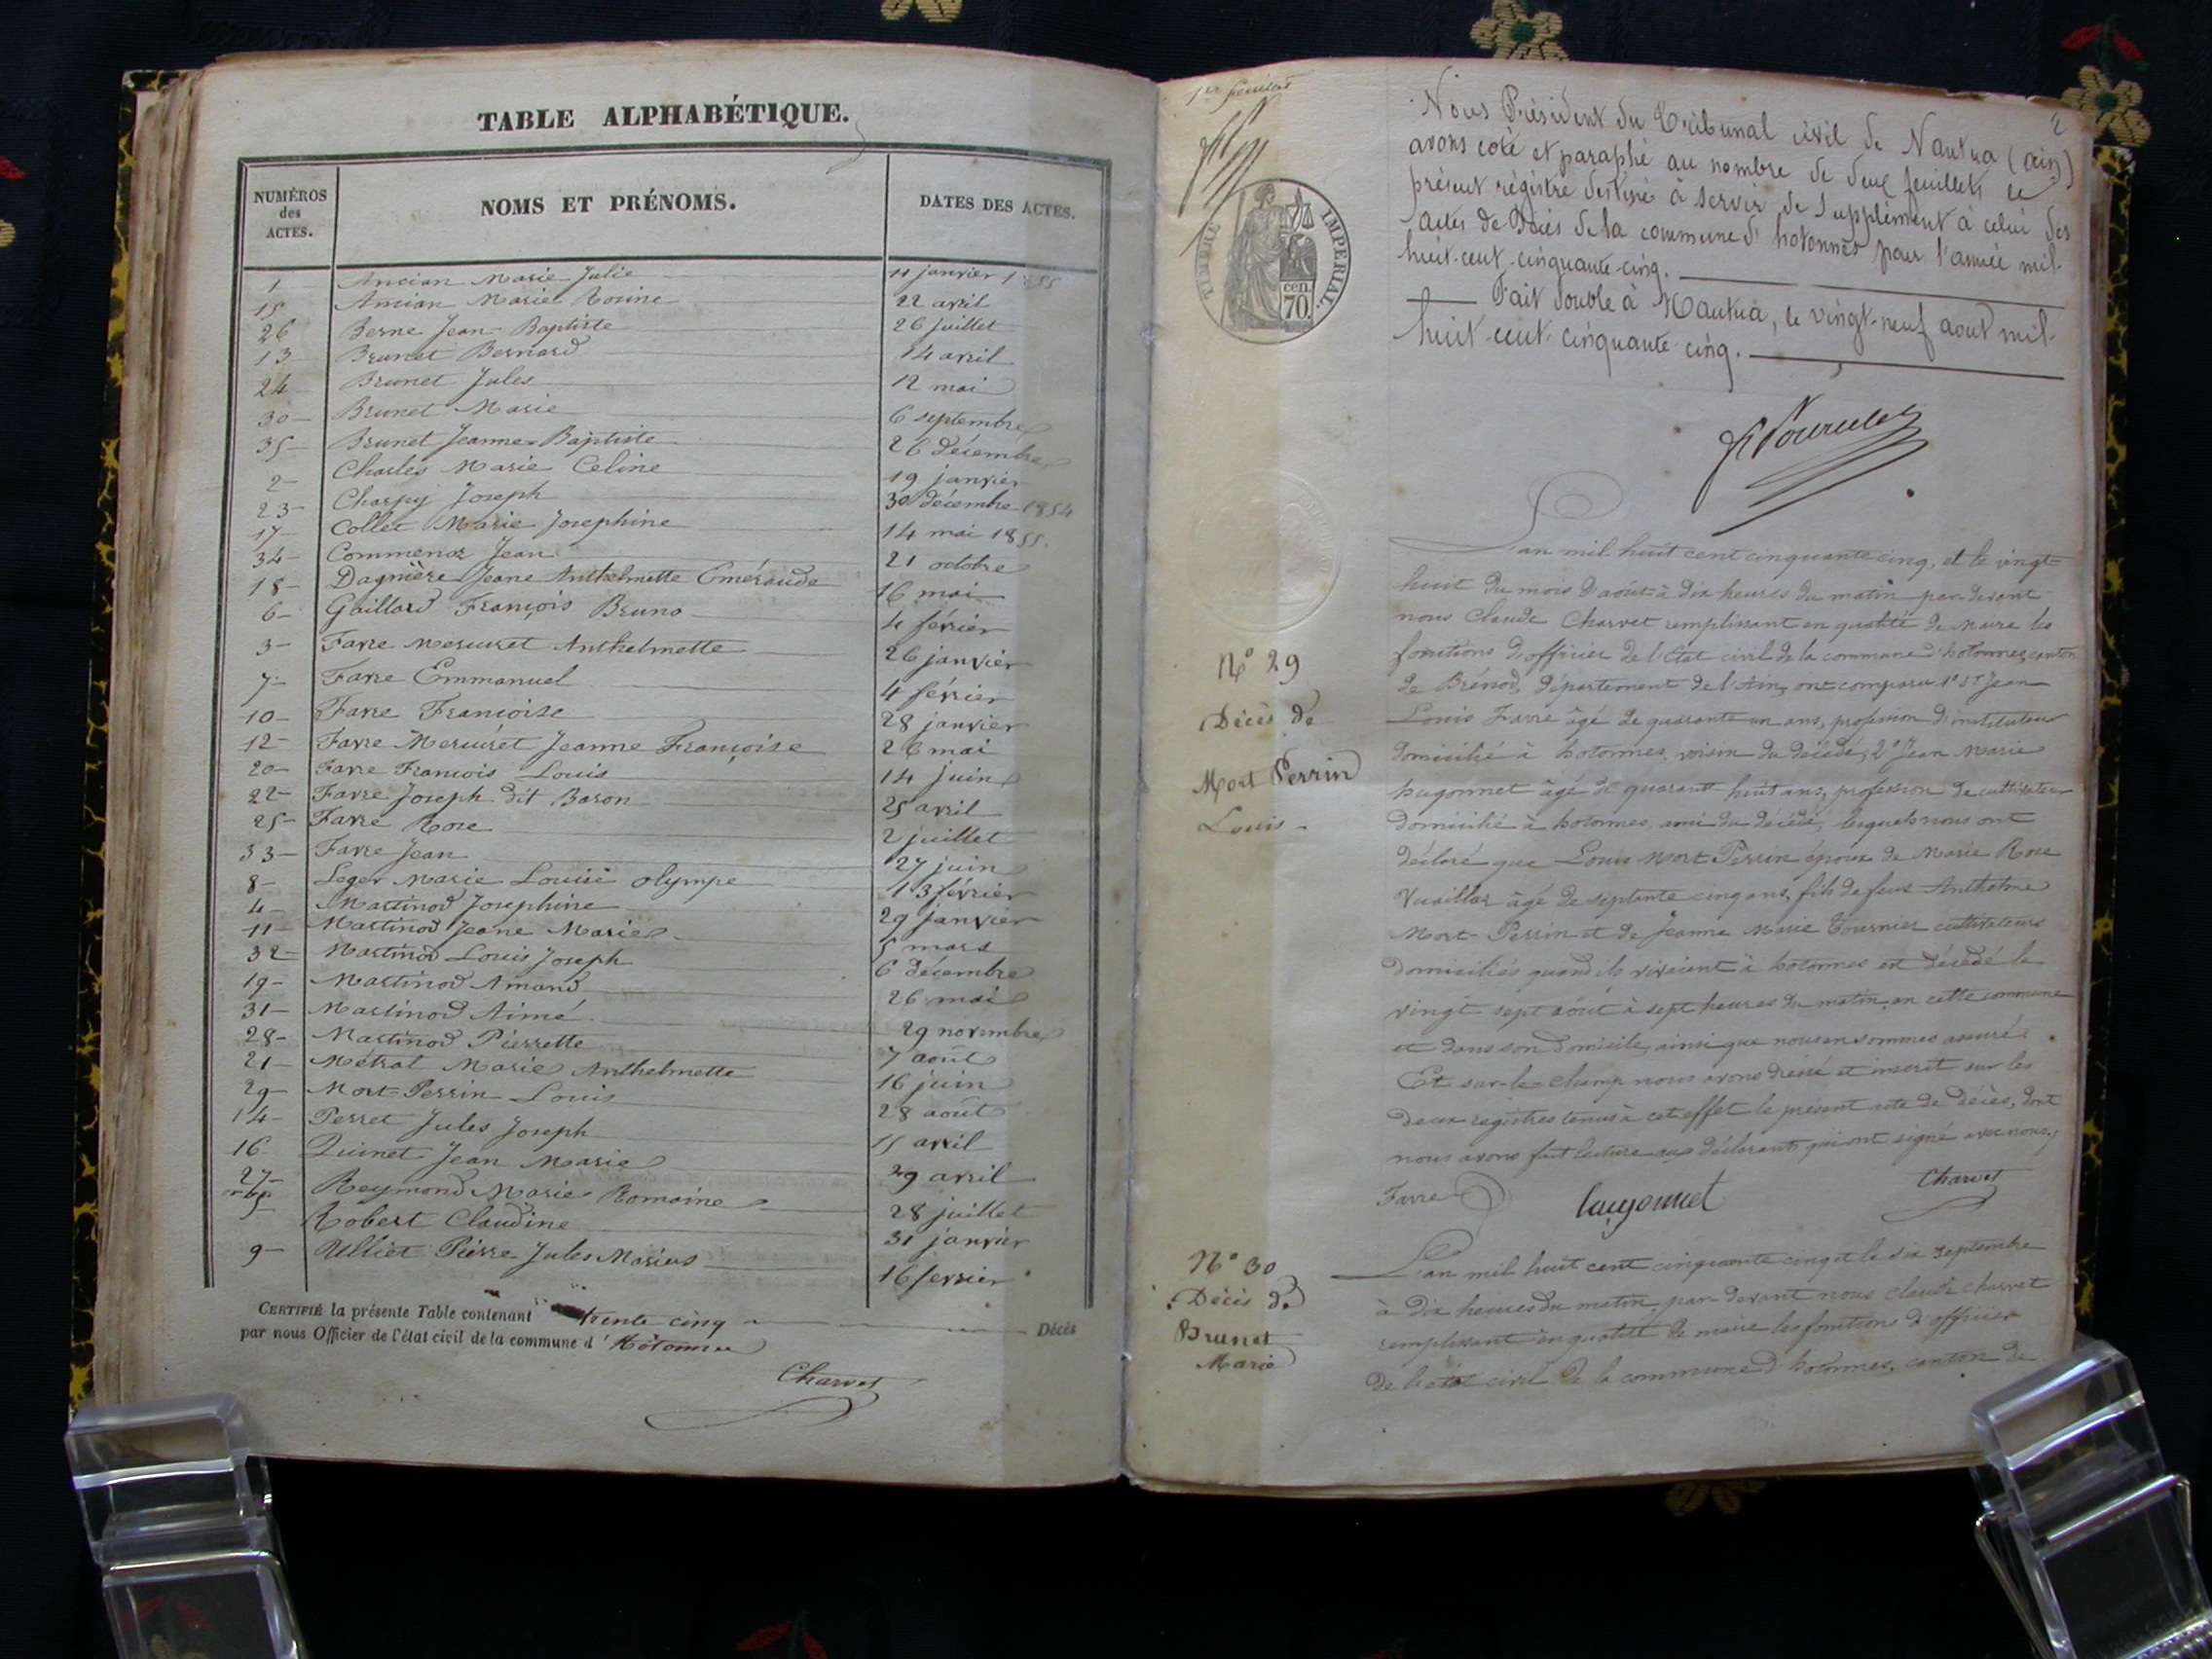 TABLE ALPHABÉTIQUE.
NUMÉROS des ACTES.
NOMS ET PRÉNOMS.
DATES DES ACTES.
1 Ancian Marie Julie 11 janvier 1855
15 Ancian Marie Rosine 22 avril
26 Berne Jean-Baptiste 26 juillet
13 Brunet Bernard 14 avril
24 Brunet Jules 12 mai
30 Brunet Marie 6 septembre
35 Brunet Jeanne-Baptiste 26 décembre
2 Charles Marie Celine 19 janvier
23 Charpy Joseph 30 décembre 1854
17 Collet Marie Josephine 14 mai 1855.
34 Jean 21 octobre
18 Dagnière Jeane Anthelmette Eméraude 16 mai
6 Gaillard François Bruno 4 février
3 Favre Mercuret Anthelmette 26 janvier
7 Favre Emmanuel 4 février
10 Favre Françoise 28 janvier
12 Favre Mercuret Jeanne Françoise 26 mai
20 Favre François Louis 14 juin
22 Favre Joseph dit Baron 25 avril
25 Favre Rose 2 juillet
33 Favre Jean 27 juin
8 Leger Marie Louise olympe 13 février
4 Martinod Josephine 29 janvier
11 Martinod Jeane Marie 5 mars
32 Martinod Louis Joseph 6 décembre
19 Martinod Amand 26 mai
31 Martinod Aimé 29 novembre
28 Martinod Pierrette 7 août
21 Métral Marie Anthelmette 16 juin
29 Mort-Perrin Louis 28 août
14 Perret Jules Joseph 15 avril
16 Quinet Jean Marie 29 avril
27 Reymond Marie Romaine 28 juillet
5 Robert Claudine 31 janvier
9 Ulliet Pierre Jules Marius 16 fevrier
CERTIFIÉ la présente Table contenant trente cinq Décès
par nous Officier de l'état civil de la commune d' Hotonnes
Charvet
1er feuillet
2
TIMBRE IMPERIAL.
cen.
70.
Nous Président du Tribunal civil de Nantua (ain)
avons coté et paraphé au nombre de deux feuillets le
présent régistre destiné à servir de supplément à celui des
actes de Décès de la commune d' hotonnes pour l'année mil-
huit-cent-cinquante-cinq.
Fait double à Nantua, le vingt-neuf aout mil-
huit-cent-cinquante-cinq.
N° 29
Décès de
Mort Perrin
Louis
L'an mil huit cent cinquante cinq, et le vingt-
huit du mois d'août à dix heures du matin par-devant
nous Claude Charvet remplissant en qualité de maire les
fonctions d'officier de l'Etat civil de la commune d'hotonnes, canton
de Brénod, département de l'Ain, ont comparu 1° Sr Jean
Louis Favre âgé de quarante un ans, profession d'instituteur
domicilié à hotonnes, voisin du décédé, 2° Jean Marie
hugonnet âgé de quarant huit ans, profession de cultivateur
domicilié à hotonnes, ami du décédé, lesquels nous ont
déclaré que Louis Mort-Perrin époux de Marie Rose
Vuaillat âgé de septante cinq ans, fils de feus Anthelme
Mort-Perrin et de Jeanne Marie Tournier cultivateurs
domiciliés quand ils vivaient à hotonnes est décédé le
vingt sept août à sept heures du matin en cette commune
et dans son domicile, ainsi que nous en sommes assuré.
Et sur-le-champ nous avons dressé et inscrit sur les
deux registres tenus à cet effet le présent acte de décès, dont
nous avons fait lecture aux déclarants qui ont signé avec nous,
Favre hugonnet Charvet
N° 30
Décès de
Brunet
Marie
L'an mil huit cent cinquante cinq et le six septembre
à dix heures du matin par-devant nous claude charvet
remplissant en qualité de maire les fonctions d'officier
de l'état civil de la commune d'hotonnes, canton de